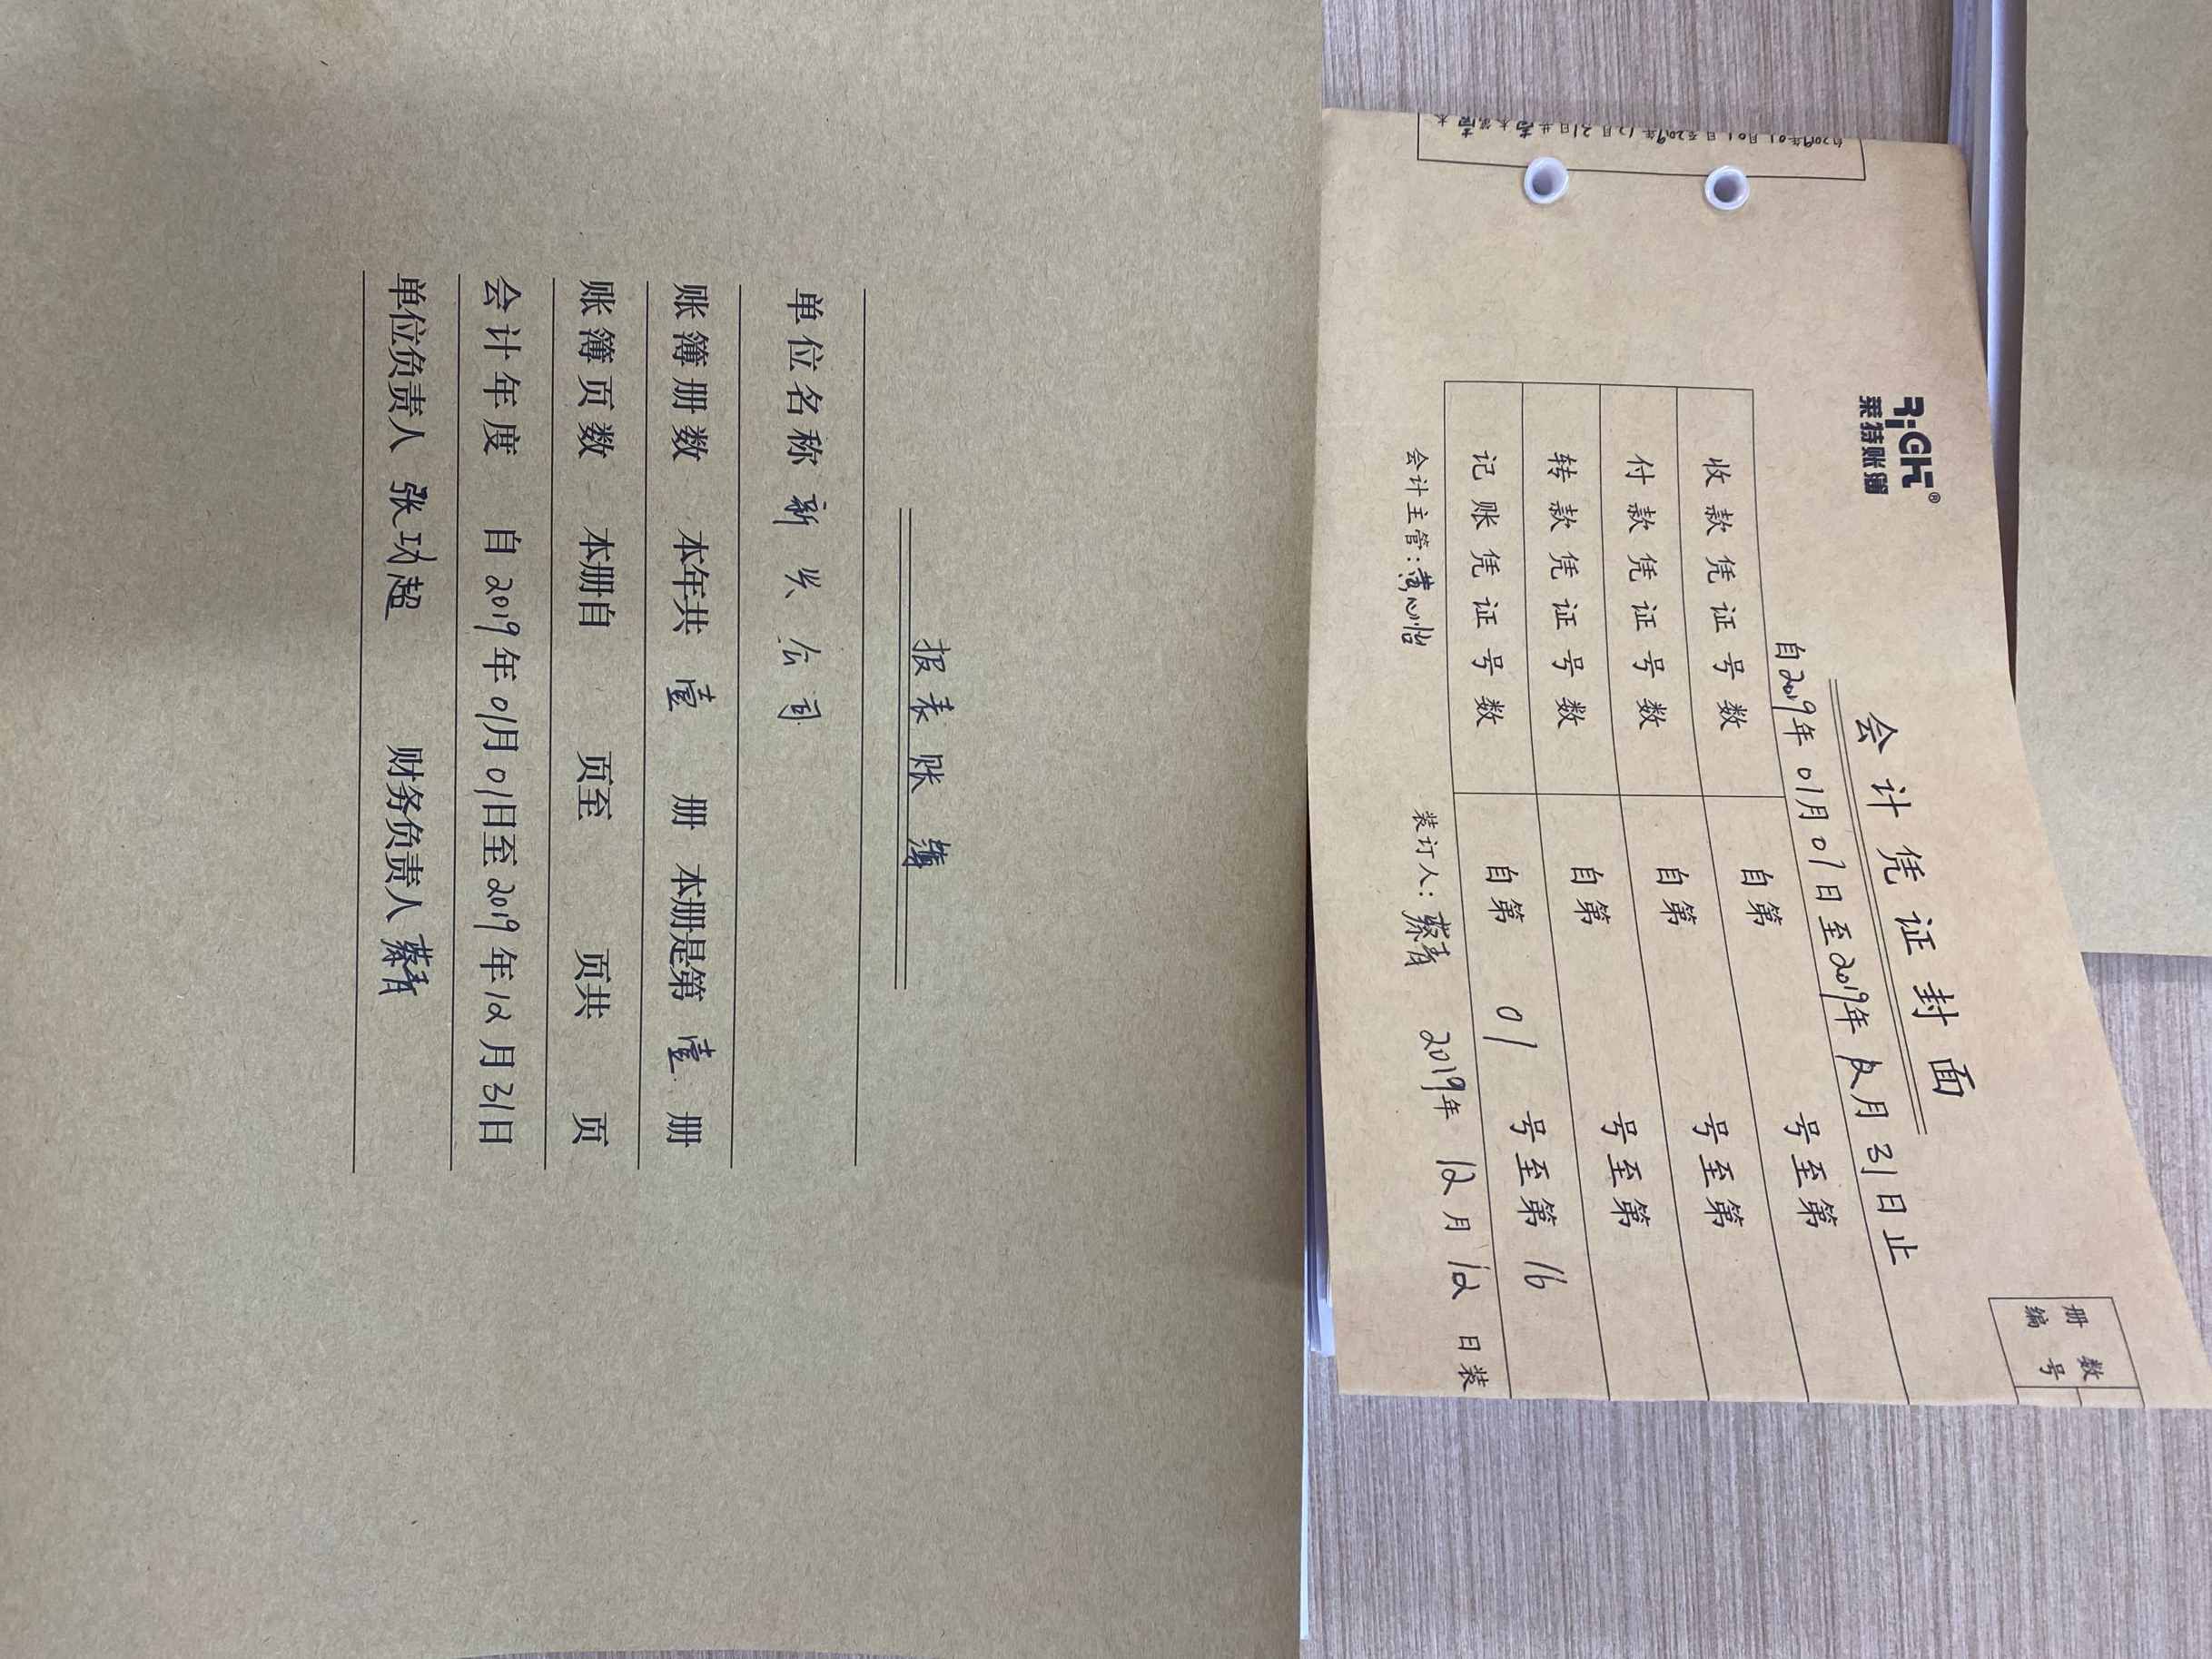 报表账簿
单位名称 新兴公司
账簿册数 本年共 壹 册 本册是第 壹 册
账簿页数 本册自 页至 页共 页
会计年度 自2019年01月01日至2019年12月31日
单位负责人 张功超 财务负责人 蔡青
莱特账簿
会计凭证封面
自2019年01月01日至2019年12月31日止
册数
编号
收款凭证号数 自第 号至第
付款凭证号数 自第 号至第
转款凭证号数 自第 号至第
记账凭证号数 自第 01 号至第 16
会计主管:黄心怡 装订人:蔡青 2019年12月12日装
自2019年01月01日至2019年12月31日共 本第 本